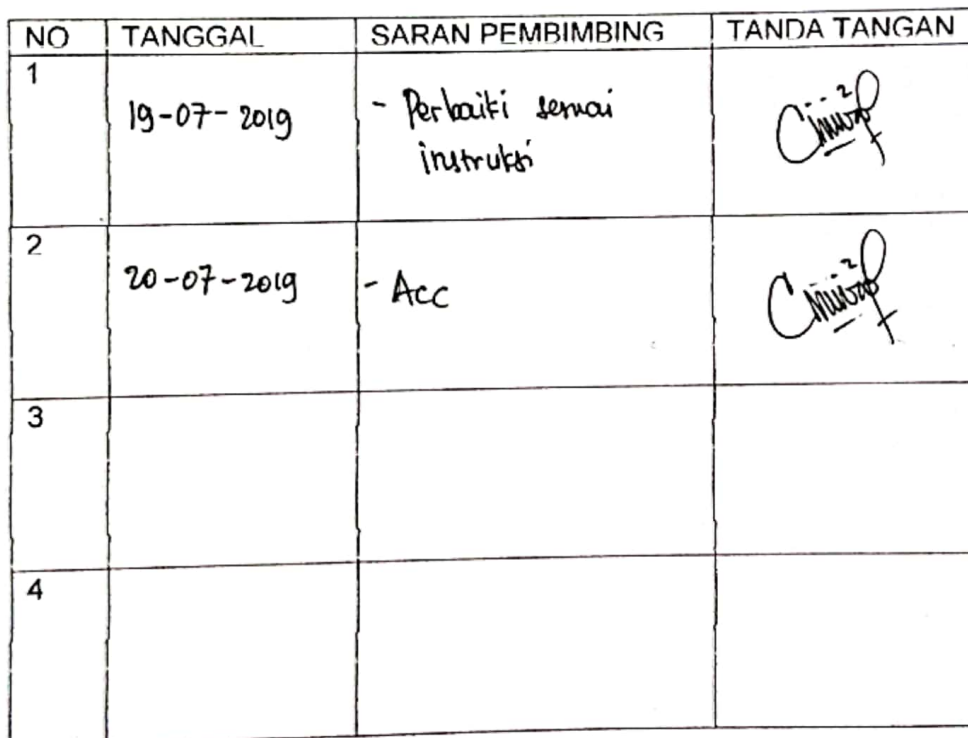 NO TANGGAL SARAN PEMBIMBING TANDA TANGAN
1
19-07-2019 - Perbaiki semai
instruksi
2
20-07-2019 - Acc
3
4